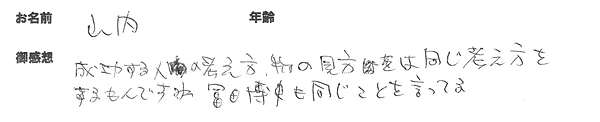 お名前 山内 年齢
御感想 成功する人の考え方、物の見方は同じ考え方を
するもんですね 冨田博史も同じことを言ってる